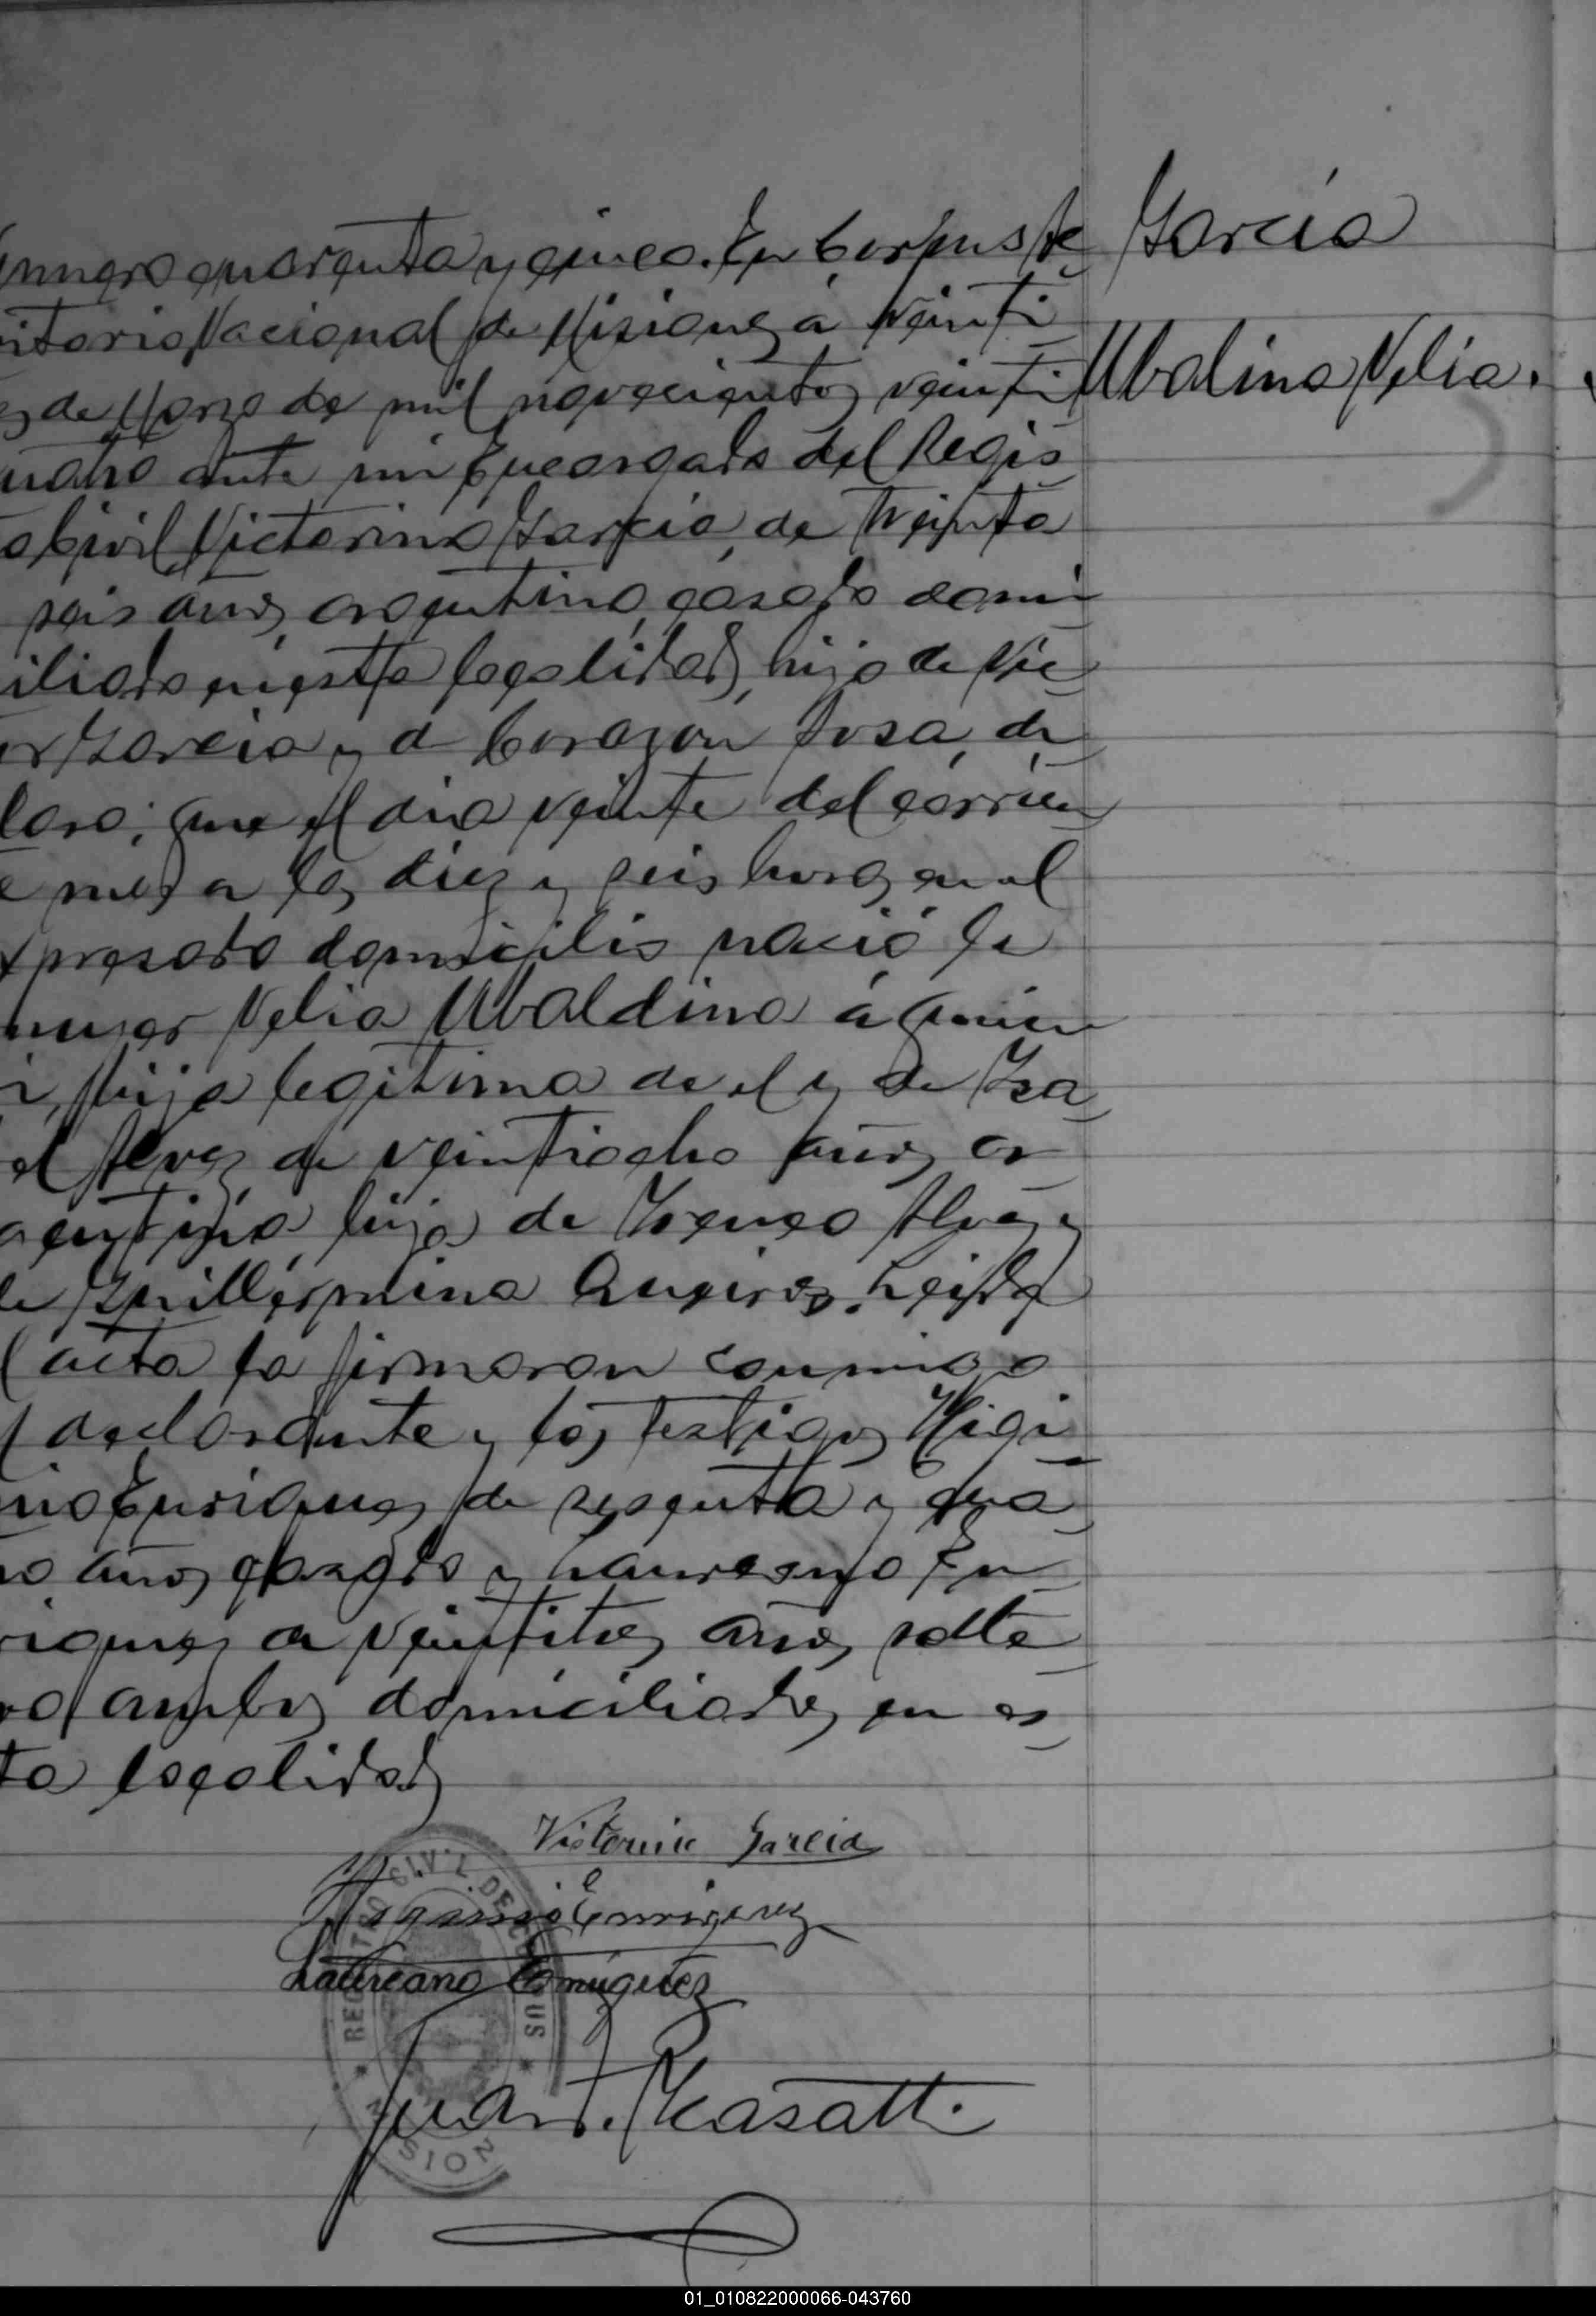 numero cuarenta y cinco. En Corpus Te
ritorio Nacional de Misiones a veinti
es de Marzo de mil novecientos veinti
uatro ante mi Encargado del Regis
o Civil, Victorino Garcia, de treinta
seis años, argentino, casado domi
iliado en esta localidad, hijo de Vic
or Garcia y d Corazon Sosa, de
laro: que el dia veinte del corrien
e mes a las diez y seis horas en el
xpresado domicilio nació la
mujer Nelia Ubaldina á quien
i, hija legitima de el y de Isa
el Alvez de veintiocho años ar
gentina, hija de Ireneo Alvez y
de Guillermina Queiroz. Leida
l acta la firmaron conmigo
l declarante y los testigos Higi
nio Enriquez de sesenta y cua
ro años casado y Laureano En
riquez de veintitres años solte
ro ambos domiciliados en es
ta localidad
Victorino Garcia
Higinio Enriquez
Laureano Enriquez
Juan
REGISTRO CIVIL DE CORPUS
MISIONES
Garcia
Ubalina Nelia.
01_010822000066-043760